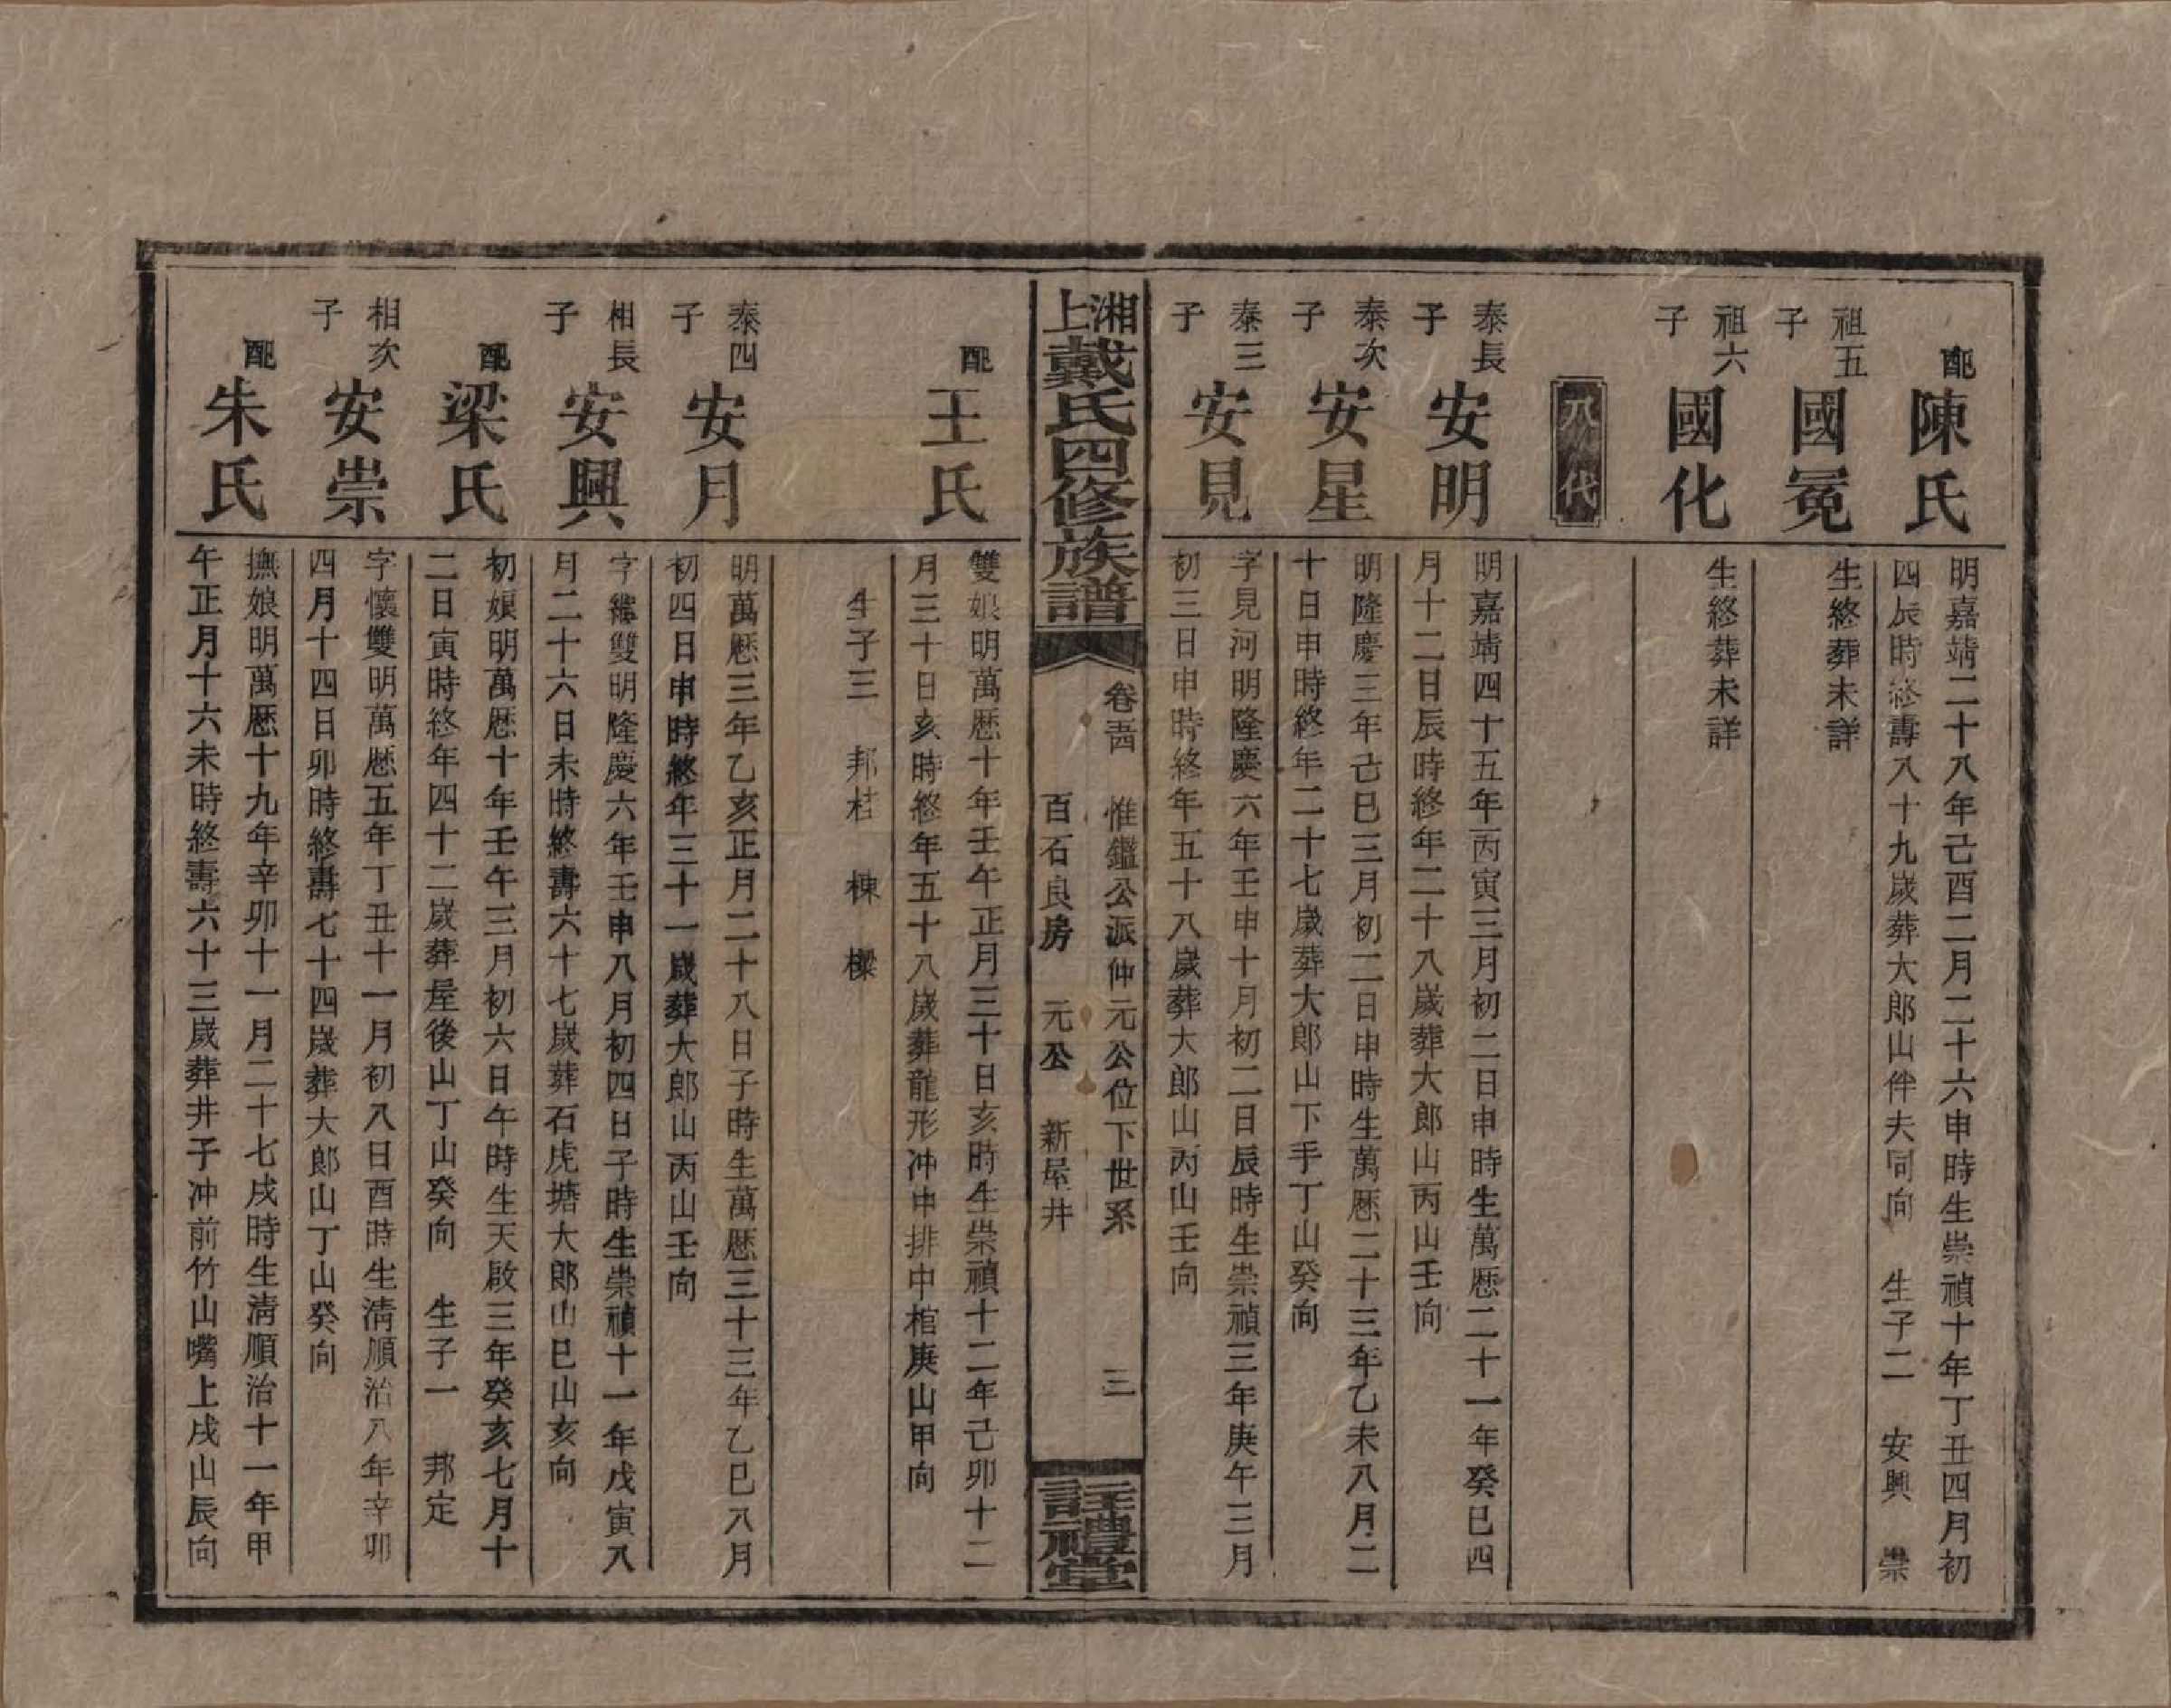 配
陳氏
明嘉靖二十八年己酉二月二十六申時生崇禎十年丁丑四月初
四辰時終壽八十九歲葬大郎山伴夫同向 生子二 安興 崇
祖五
子
國冕
生終葬未詳
祖六
子
國化
生終葬未詳
八代
泰長
子
安明
明嘉靖四十五年丙寅三月初二日申時生萬歷二十一年癸巳四
月十二日辰時終年二十八歲葬大郎山丙山壬向
泰次
子
安星
明隆慶三年己巳三月初二日申時生萬歷二十三年乙未八月二
十日申時終年二十七歲葬大郎山下手丁山癸向
泰三
子
安見
字見河明隆慶六年壬申十月初二日辰時生崇禎三年庚午三月
初三日申時終年五十八歲葬大郎山丙山壬向
湘上戴氏四修族譜
卷 惟鑑公派仲元公位下世系 三
百石良房 元公 新屋井
註禮堂
配
王氏
雙娘明萬歷十年壬午正月三十日亥時生崇禎十二年己卯十二
月三十日亥時終年五十八歲葬龍形冲中排中棺庚山甲向
生子三 邦桂 棟 樑
泰四
子
安月
明萬歷三年乙亥正月二十八日子時生萬歷三十三年乙巳八月
初四日申時終年三十一歲葬大郎山丙山壬向
相長
子
安興
字繼雙明隆慶六年壬申八月初四日子時生崇禎十一年戊寅八
月二十六日未時終壽六十七歲葬石虎塘大郎山巳山亥向
配
梁氏
初娘明萬歷十年壬午三月初六日午時生天啟三年癸亥七月十
二日寅時終年四十二歲葬屋後山丁山癸向 生子一 邦定
相次
子
安崇
字懷雙明萬歷五年丁丑十一月初八日酉時生清順治八年辛卯
四月十四日卯時終壽七十四歲葬大郎山丁山癸向
配
朱氏
撫娘明萬歷十九年辛卯十一月二十七戌時生清順治十一年甲
午正月十六未時終壽六十三歲葬井子冲前竹山嘴上戌山辰向